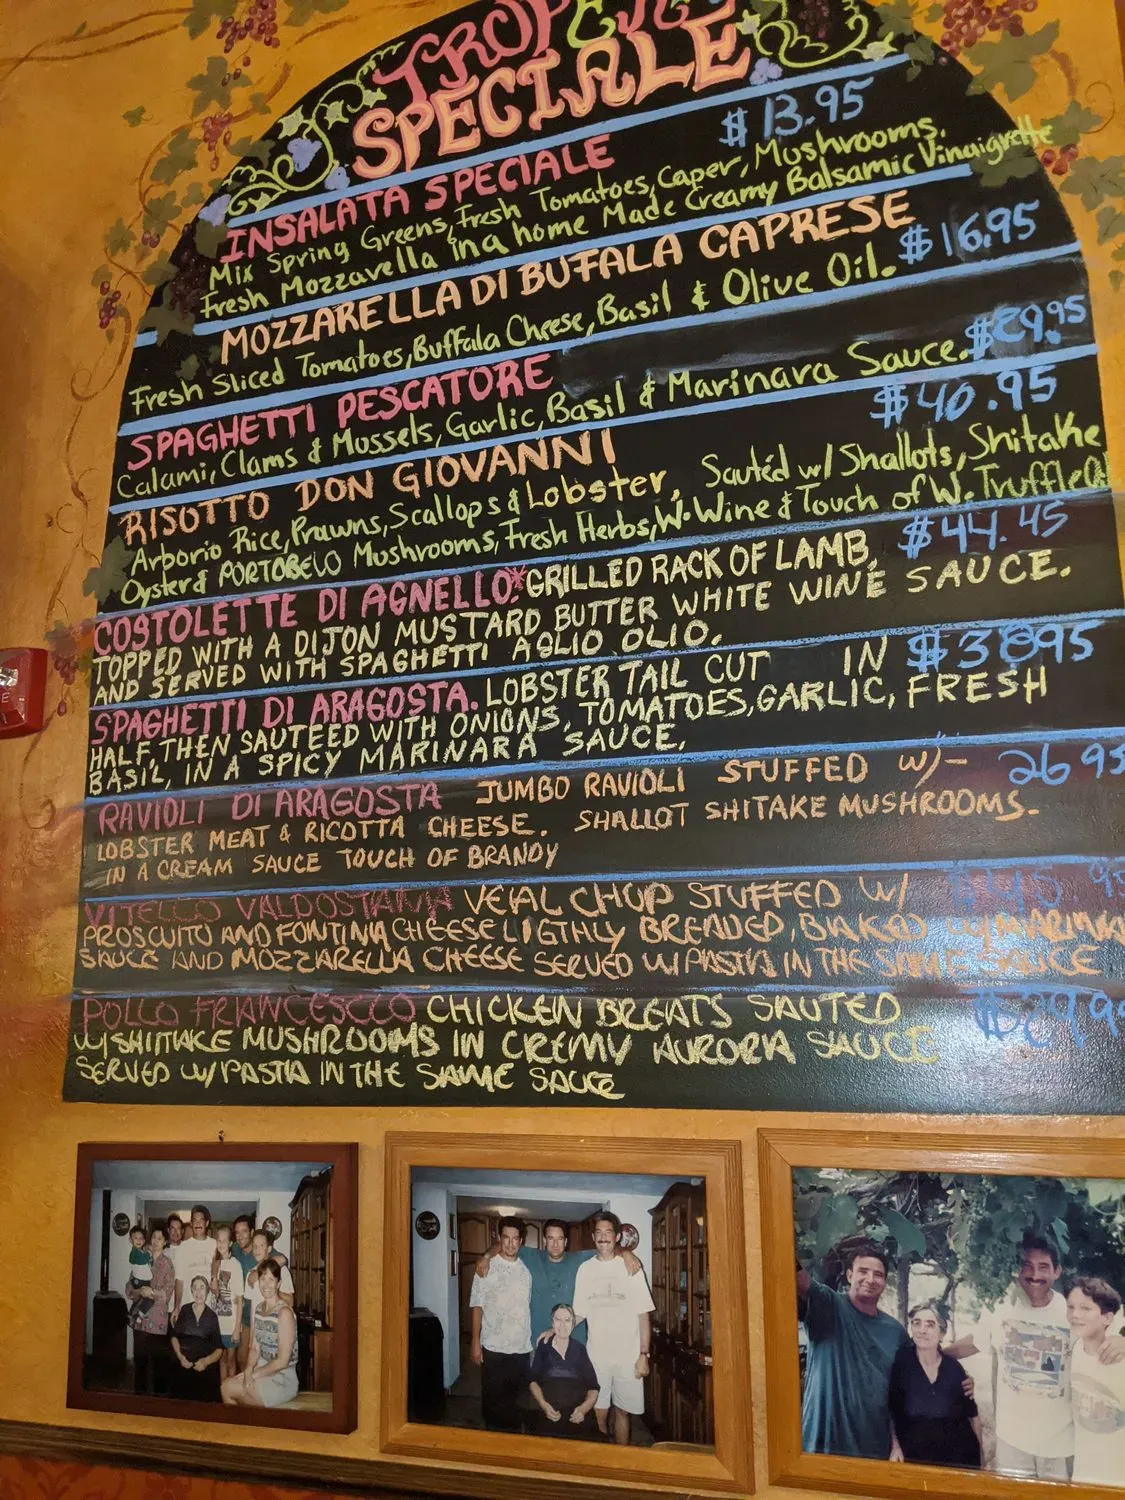 SPECIALE
INSALATA SPECIALE $13.95
Mix Spring Greens, Fresh Tomatoes, Caper, Mushrooms.
Fresh Mozzarella in a home Made Creamy Balsamic Vinaigrette
MOZZARELLA DI BUFALA CAPRESE $16.95
Fresh Sliced Tomatoes, Buffala Cheese, Basil & Olive Oil.
SPAGHETTI PESCATORE $29.95
Calami, Clams & Mussels, Garlic, Basil & Marinara Sauce.
RISOTTO DON GIOVANNI $40.95
Arborio Rice, Prawns, Scallops & Lobster, Sautéd w/ Shallots, Shitake
Oyster & PORTOBELO Mushrooms, Fresh Herbs, W. Wine & Touch of W. Truffle Oil
COSTOLETTE DI AGNELLO.* GRILLED RACK OF LAMB, $44.45
TOPPED WITH A DIJON MUSTARD BUTTER WHITE WINE SAUCE.
AND SERVED WITH SPAGHETTI AGLIO OLIO.
SPAGHETTI DI ARAGOSTA. LOBSTER TAIL CUT IN $38.95
HALF, THEN SAUTEED WITH ONIONS, TOMATOES, GARLIC, FRESH
BASIL, IN A SPICY MARINARA SAUCE.
RAVIOLI DI ARAGOSTA JUMBO RAVIOLI STUFFED w/- 26 95
LOBSTER MEAT & RICOTTA CHEESE. SHALLOT SHITAKE MUSHROOMS.
IN A CREAM SAUCE TOUCH OF BRANDY
VITELLO VALDOSTANA VEAL CHOP STUFFED W/ $45.95
PROSCUITO AND FONTINA CHEESE LIGTHLY BREADED, BAKED W/ MARINARA
SAUCE AND MOZZARELLA CHEESE SERVED W/ PASTA IN THE SAME SAUCE
POLLO FRANCESCO CHICKEN BREATS SAUTED
W/ SHIITAKE MUSHROOMS IN CREMY AURORA SAUCE
SERVED W/ PASTA IN THE SAME SAUCE